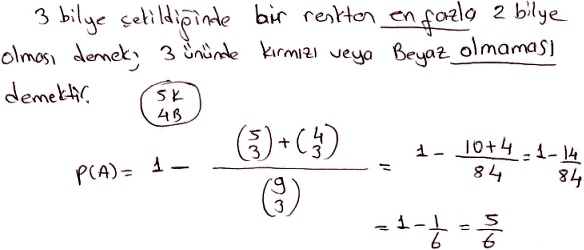 3 bilye çekildiğinde bir renkten en fazla 2 bilye
olması demek; 3 ününde kırmızı veya Beyaz olmaması
demektir.
5K
4B
P(A) = 1 - \frac{\binom{5}{3} + \binom{4}{3}}{\binom{9}{3}} = 1 - \frac{10+4}{84} = 1 - \frac{14}{84}
= 1 - \frac{1}{6} = \frac{5}{6}